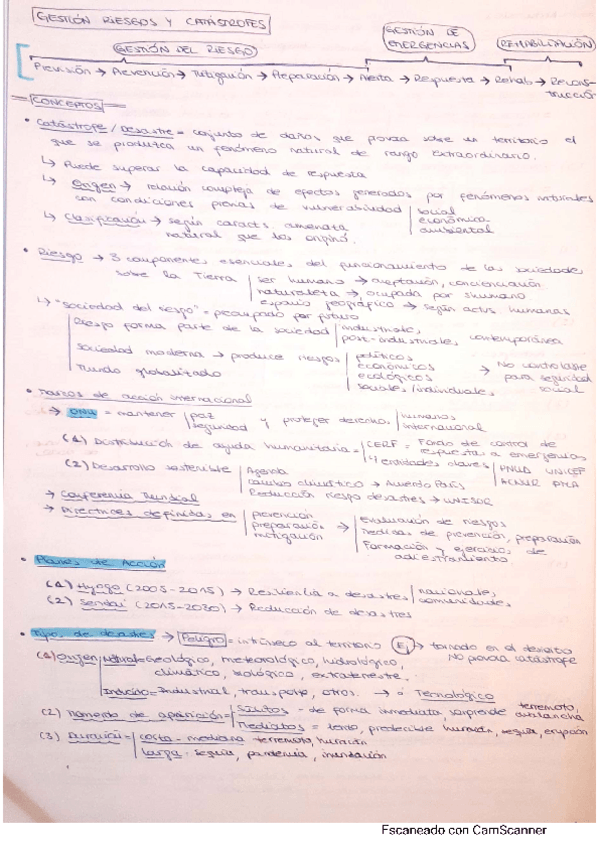 GESTIÓN RIESGOS Y CATÁSTROFES
GESTIÓN DEL RIESGO
GESTIÓN DE EMERGENCIAS
REHABILITACIÓN
Previsión → Prevención → Mitigación → Preparación → Alerta → Respuesta → Rehab → Recons-
trucción
CONCEPTOS
• Catástrofe / Desastre = conjunto de daños que provoca sobre un territorio el
que se produzca un fenómeno natural de rango extraordinario.
↳ Puede superar la capacidad de respuesta
↳ Origen → relación compleja de efectos generados por fenómenos naturales
con condiciones previas de vulnerabilidad | social
económica
ambiental
↳ Clasificación → según caracts. amenaza
natural que las originó.
• Riesgo → 3 componentes esenciales del funcionamiento de las sociedades
sobre la Tierra | ser humano → aceptación, concienciación
naturaleza → ocupada por shumano
espacio geográfico → según activs. humanas
↳ "Sociedad del riesgo" = preocupado por futuro
Riesgo forma parte de la sociedad | industriale,
post-industriale, contemporánea
Sociedad moderna → produce riesgos | políticos
económicos
ecológicos
sociales/individuales,
→ No controlaste
para seguridad
social
Mundo globalizado
• Marcos de acción internacional
→ ONU = mantener | paz
seguridad y proteger derechos | humanos
internacional
(1) Distribución de ayuda humanitaria = | CERF = Fondo de control de
respuesta a emergencias
4 entidades claves | PNUD UNICEF
ACNUR PMA
(2) Desarrollo sostenible | Agenda
Cambio climático → Acuerdo París
Reducción riesgo desastres → UNISDR
→ Conferencia Mundial
→ Directrices definidas en | prevención
preparación
mitigación
→ | Evaluación de riesgos
Medidas de prevención, preparación
Formación y ejercicios de
adiestramiento.
• Planes de Acción
(1) Hyogo (2005-2015) → Resiliencia a desastres | nacionales
comunidades
(2) Sendai (2015-2030) → Reducción de desastres
• Tipos de desastres → Peligro = intrínseco al territorio Ej → tornado en el desierto
No provoca catástrofe
(1) Origen | Natural = Geológico, meteorológico, hidrológico,
climático, biológico, extraterrestre.
Inducido = Industrial, transporte, otros. → o Tecnológico
(2) Momento de aparición = | Súbitos - de forma inmediata, sorprende terremoto,
avalancha
Mediatos = lento, predecible huracán, sequía, erupción
(3) Duración = | corta - mediana terremoto, huracán
larga - sequía, pandemia, inundación
Escaneado con CamScanner